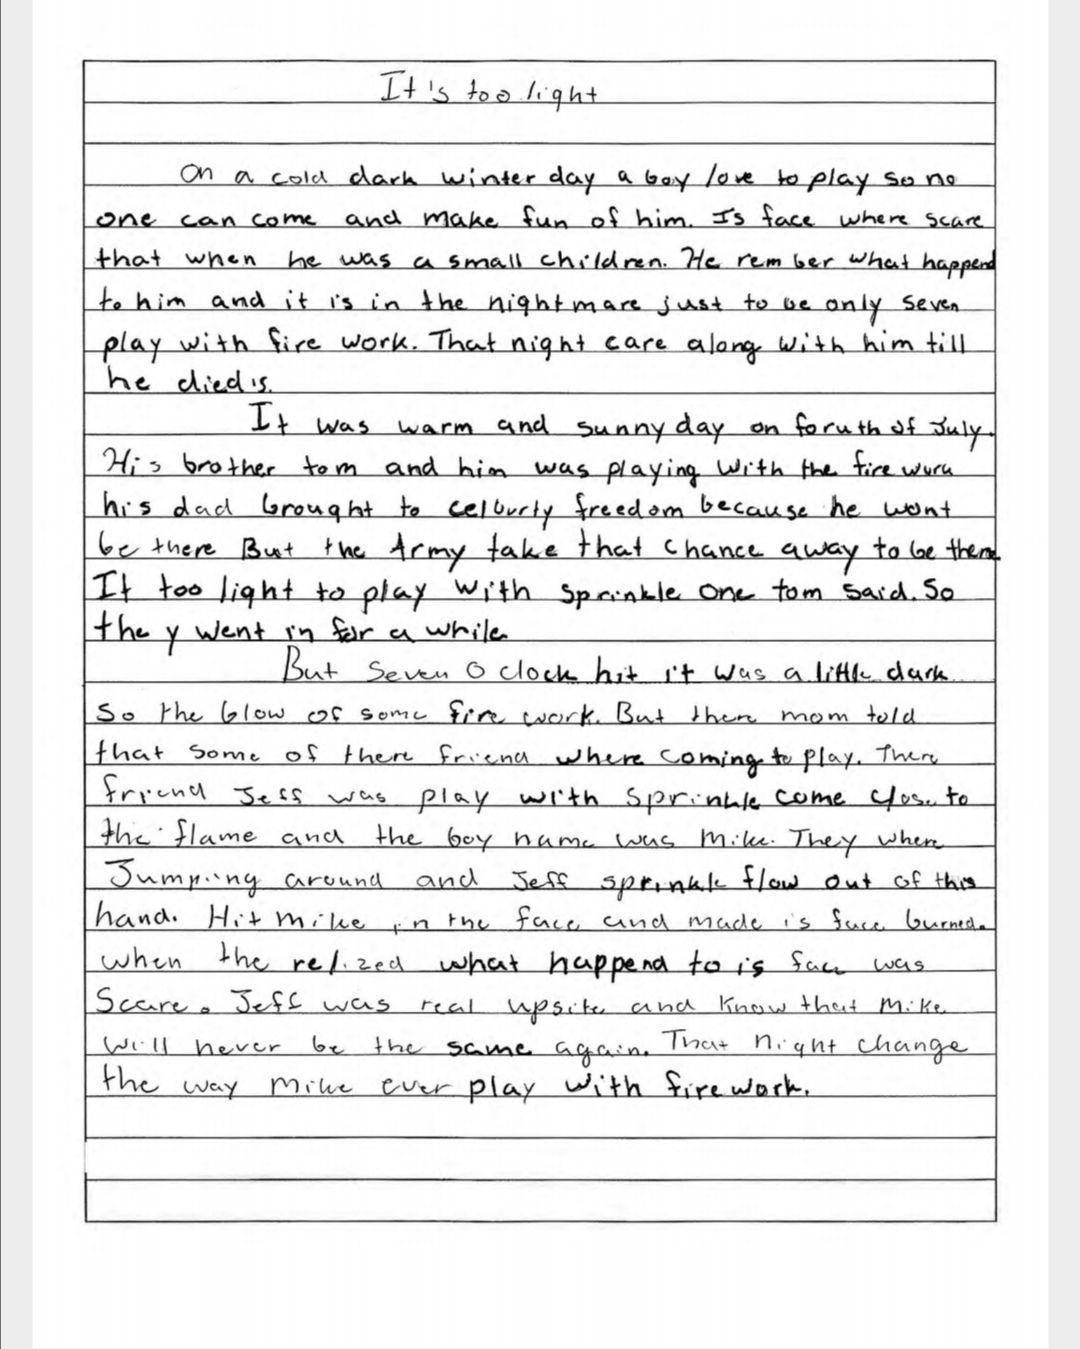 It's too light
On a cold dark winter day a boy love to play so no
one can come and make fun of him. Is face where scare
that when he was a small children. He rember what happend
to him and it is in the nightmare just to be only seven
play with fire work. That night care along with him till
he died is.
It was warm and sunny day on foruth of July.
His brother tom and him was playing with the fire wurk
his dad brought to celburty freedom because he wont
be there But the Army take that chance away to be there
It too light to play with sprinkle one tom said. So
they went in for a while
But seven O clock hit it was a little dark
So the blow of some fire work. But there mom told
that some of there friend where coming to play. There
friend Jeff was play with sprinkle come close to
the flame and the boy name was Mike. They where
Jumping around and Jeff sprinkle flow out of this
hand. Hit mike in the face and made is face burned.
when the relized what happend to is face was
Scare. Jeff was real upsite and know that Mike
will never be the same again. That night change
the way mike ever play with fire work.